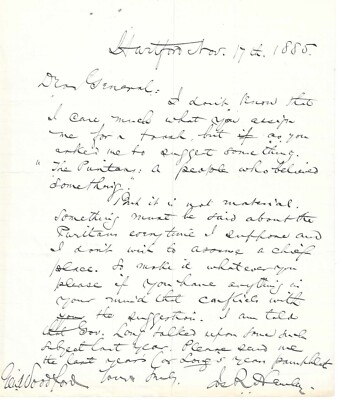 Hartford Nov. 17th. 1885.
Dear General:
I don't know that
I care much what you assign
me for a toast, but if as you
asked me to suggest something.
"The Puritans: A people who believed
something."
But it is not material.
Something must be said about the
Puritans everytime I suppose and
I don't wish to assume a chief
place. So make it whatever you
please if you have anything in
your mind that conflicts with
the suggestion. I am told
Gov. Long talked upon some such
subject last year. Please send me
the last years (or Long's year) pamphlet
Yours truly,
Jos R. Hawley.
Woodford